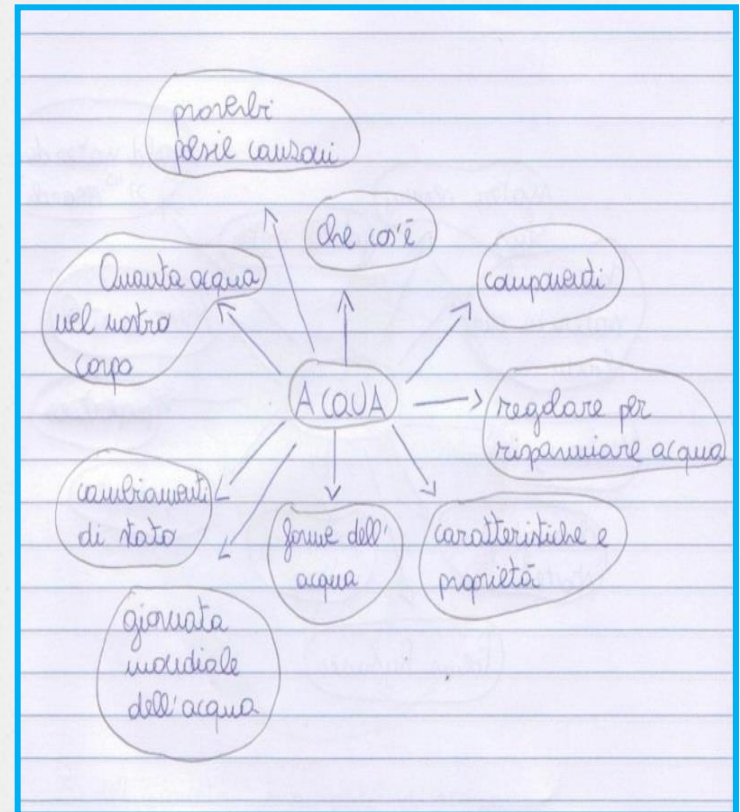 proverbi
poesie canzoni
che cos'è
Quanta acqua
nel nostro
corpo
componenti
ACQUA
regolare per
risparmiare acqua
cambiamenti
di stato
forme dell'
acqua
caratteristiche e
proprietà
giornata
mondiale
dell'acqua